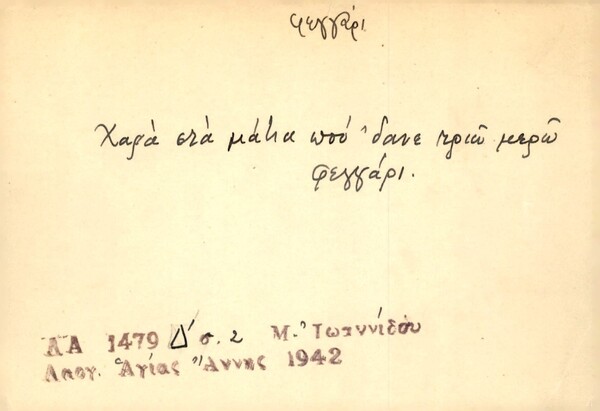 φεγγάρι
Χαρά στά μάτια πού 'δανε τριῶ μερῶ
φεγγάρι.
ΛΑ 1479 Δ' σ. 2 Μ. Ἰωαννίδου
Λαογ. Ἁγίας Ἄννης 1942